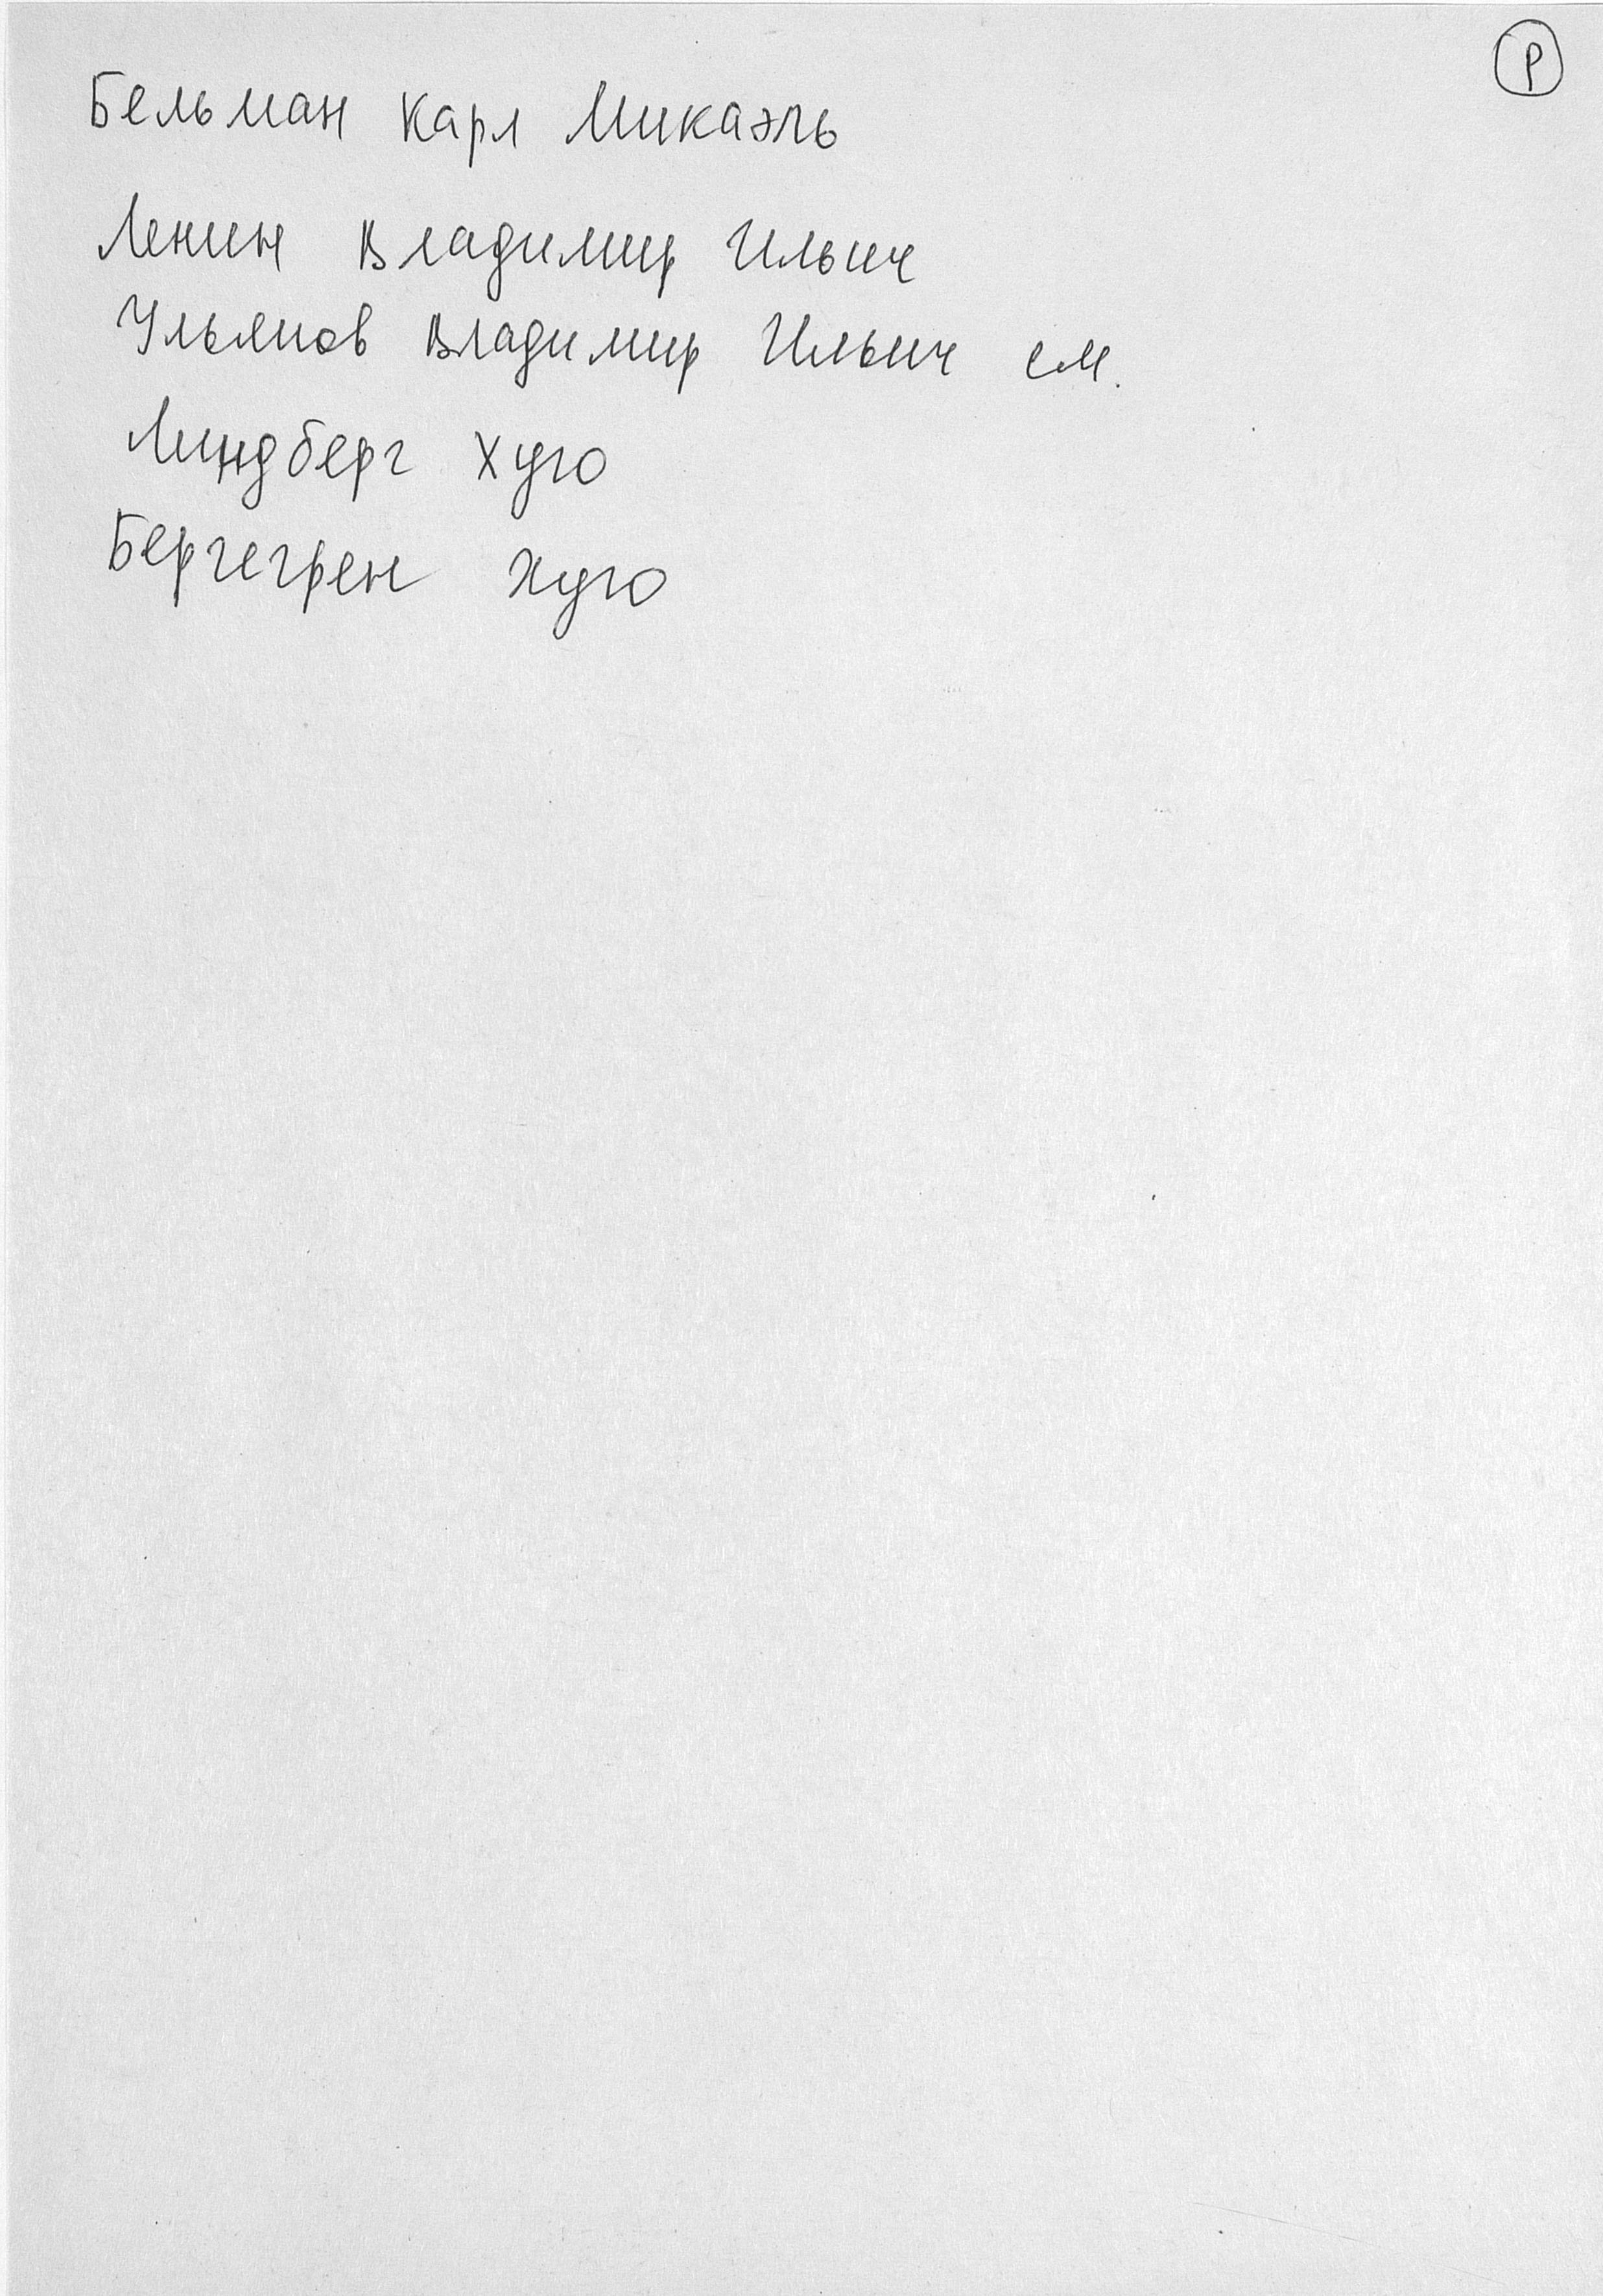 Р
Бельман Карл Микаэль
Ленин Владимир Ильич
Ульянов Владимир Ильич см.
Линдберг Хуго
Бергегрен Хуго